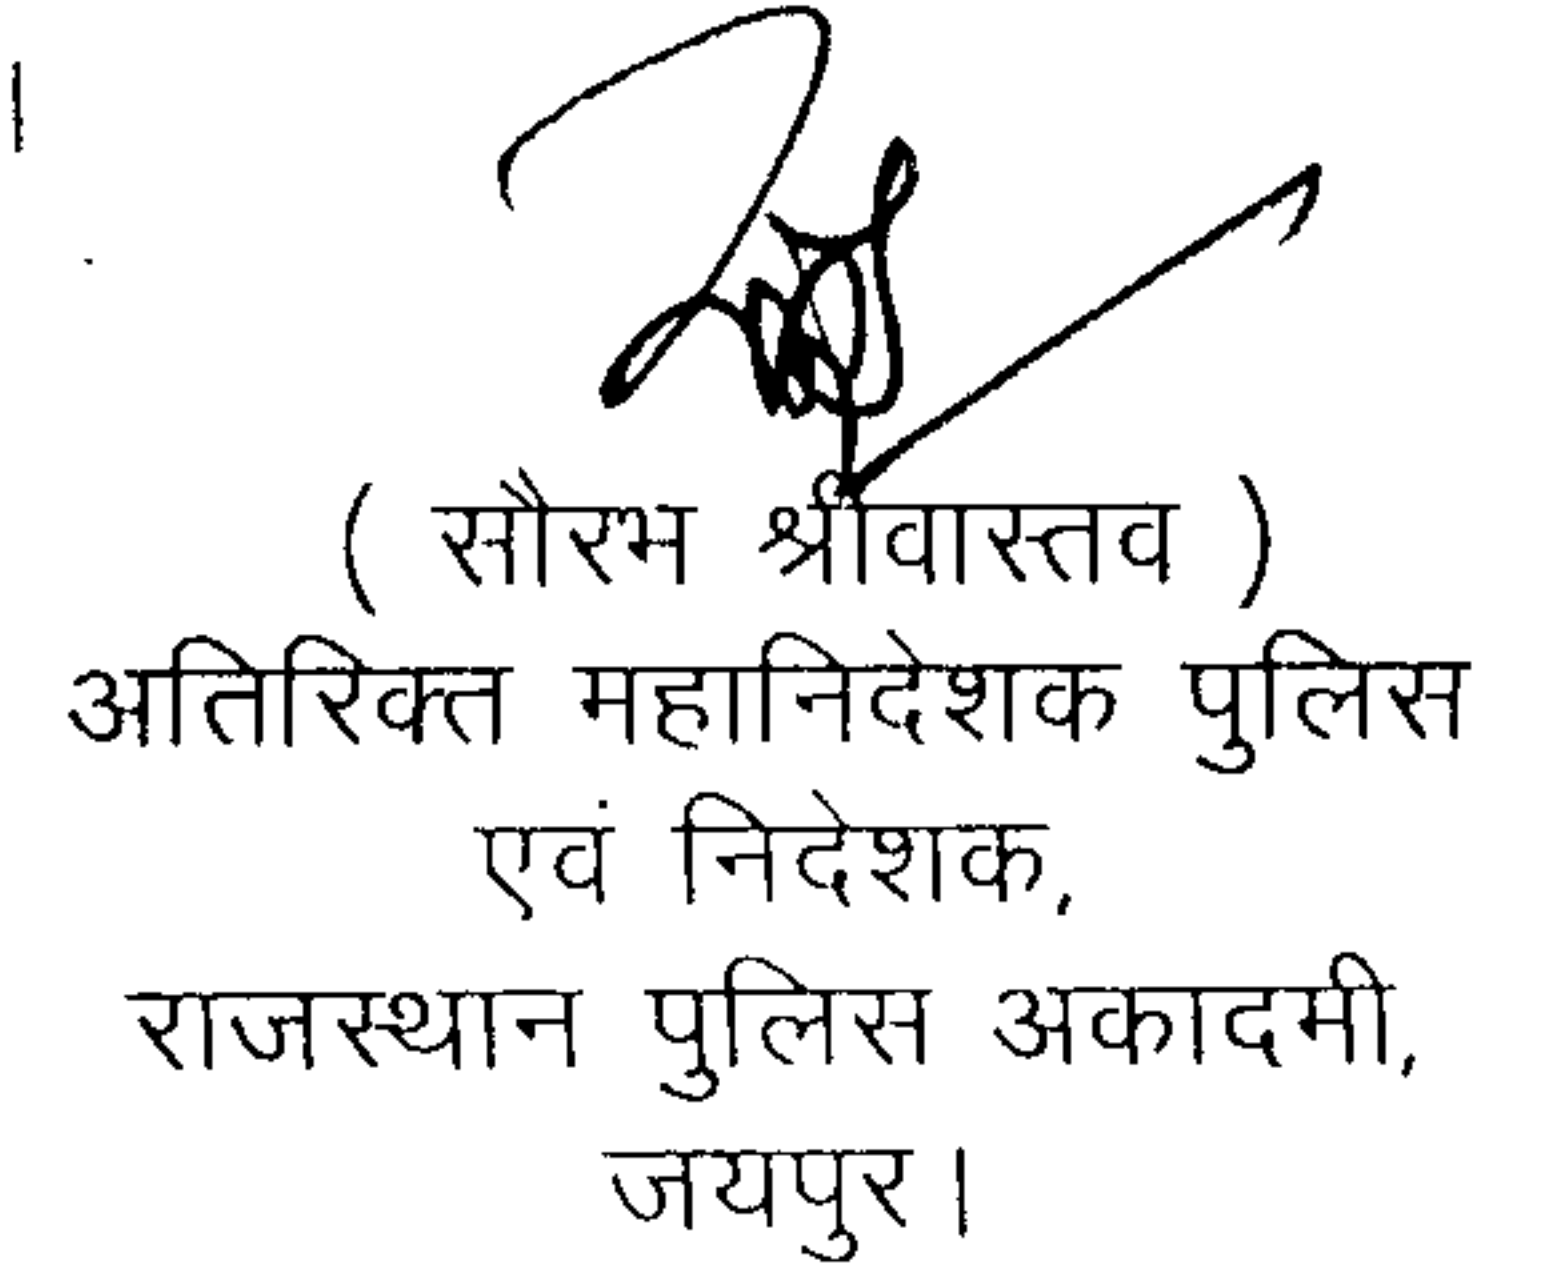 ( सौरभ श्रीवास्तव )
अतिरिक्त महानिदेशक पुलिस
एवं निदेशक,
राजस्थान पुलिस अकादमी,
जयपुर।